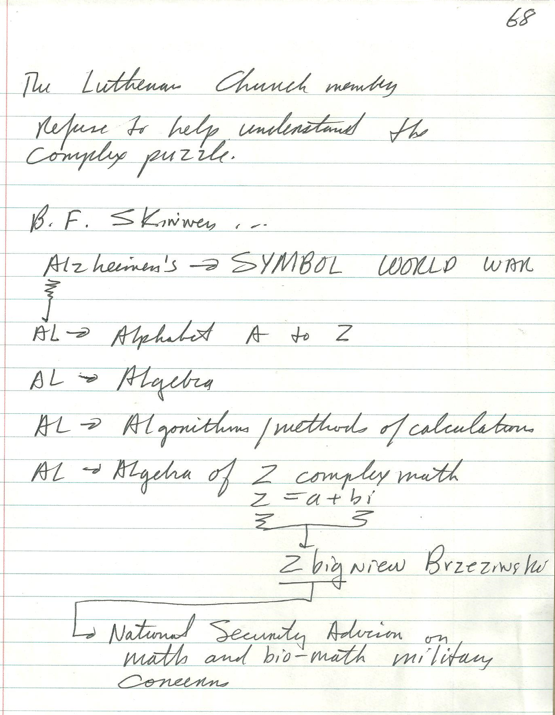 68
The Lutheran Church members
Refuse to help understand the
complex puzzle.
B. F. Skinner ...
Alzheimer's → SYMBOL WORLD WAR
AL → Alphabet A to Z
AL → Algebra
AL → Algorithms / methods of calculations
AL → Algebra of Z complex math
Z = a + bi
Zbigniew Brzezinski
National Security Advisor on
maths and bio-math military
concerns